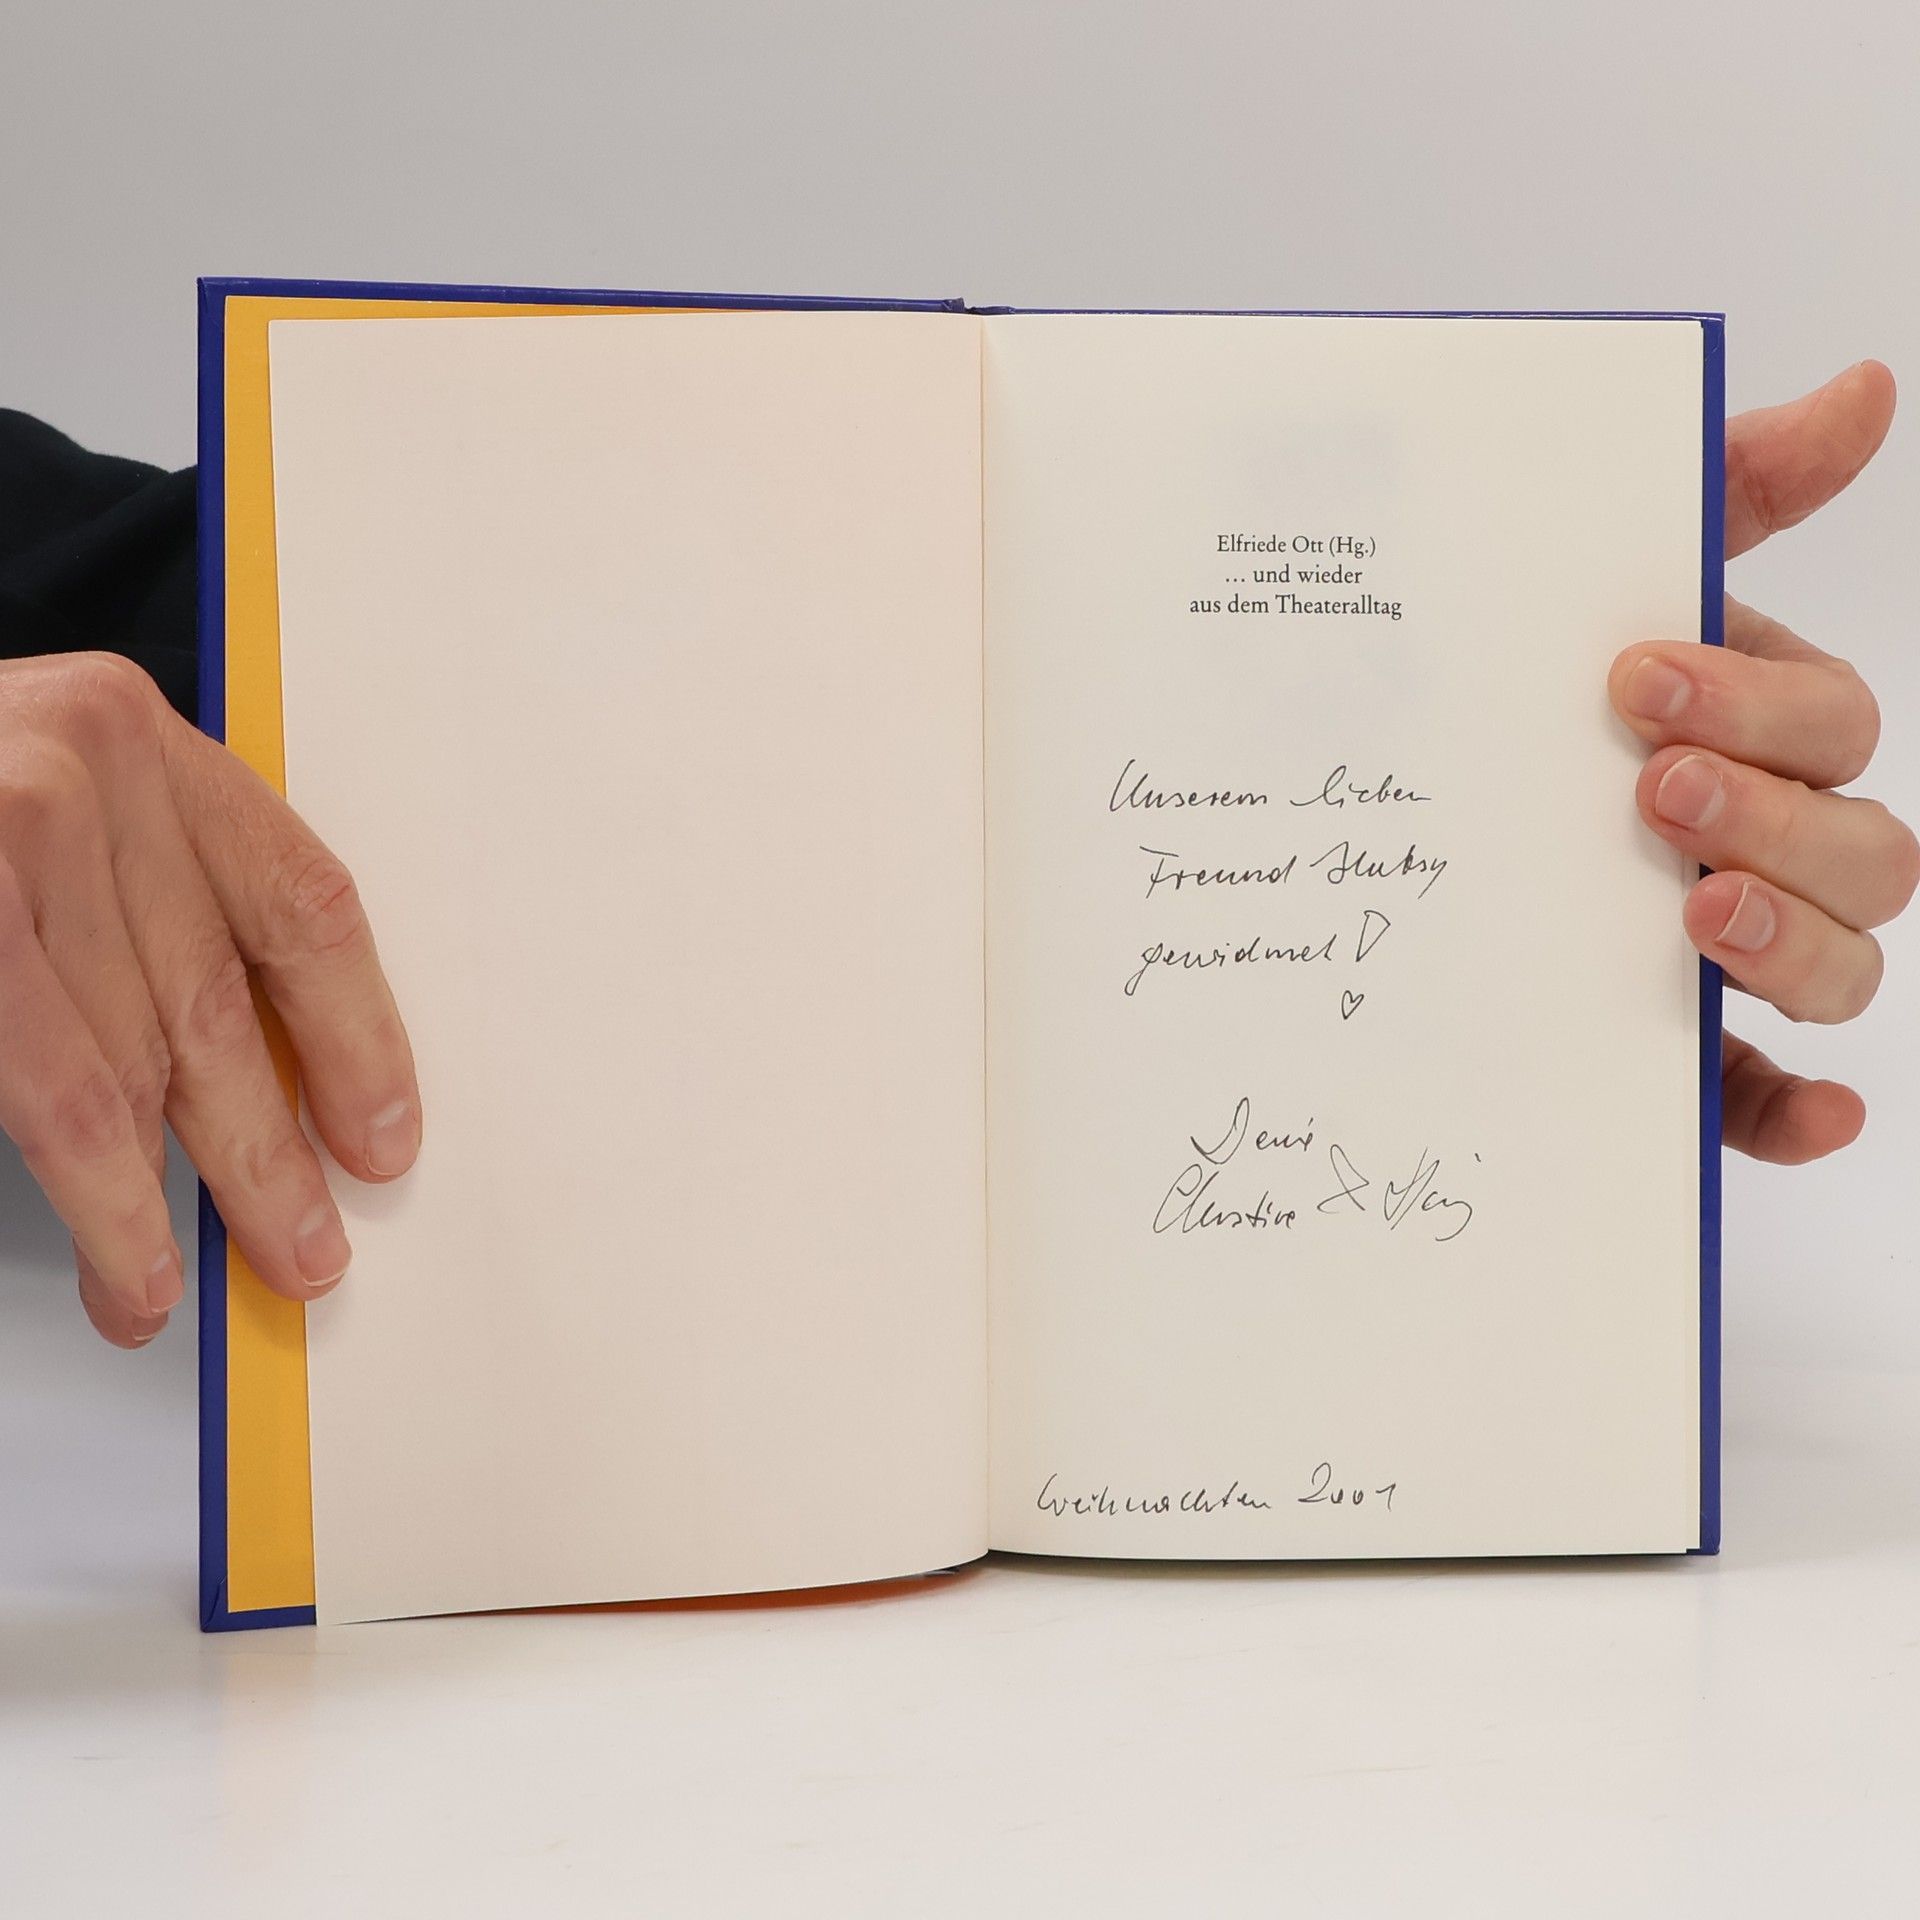 Elfriede Ott (Hg.)
… und wieder
aus dem Theateralltag
Unserem lieben
Freund
gewidmet!
♡
Christine &
Weihnachten 2001